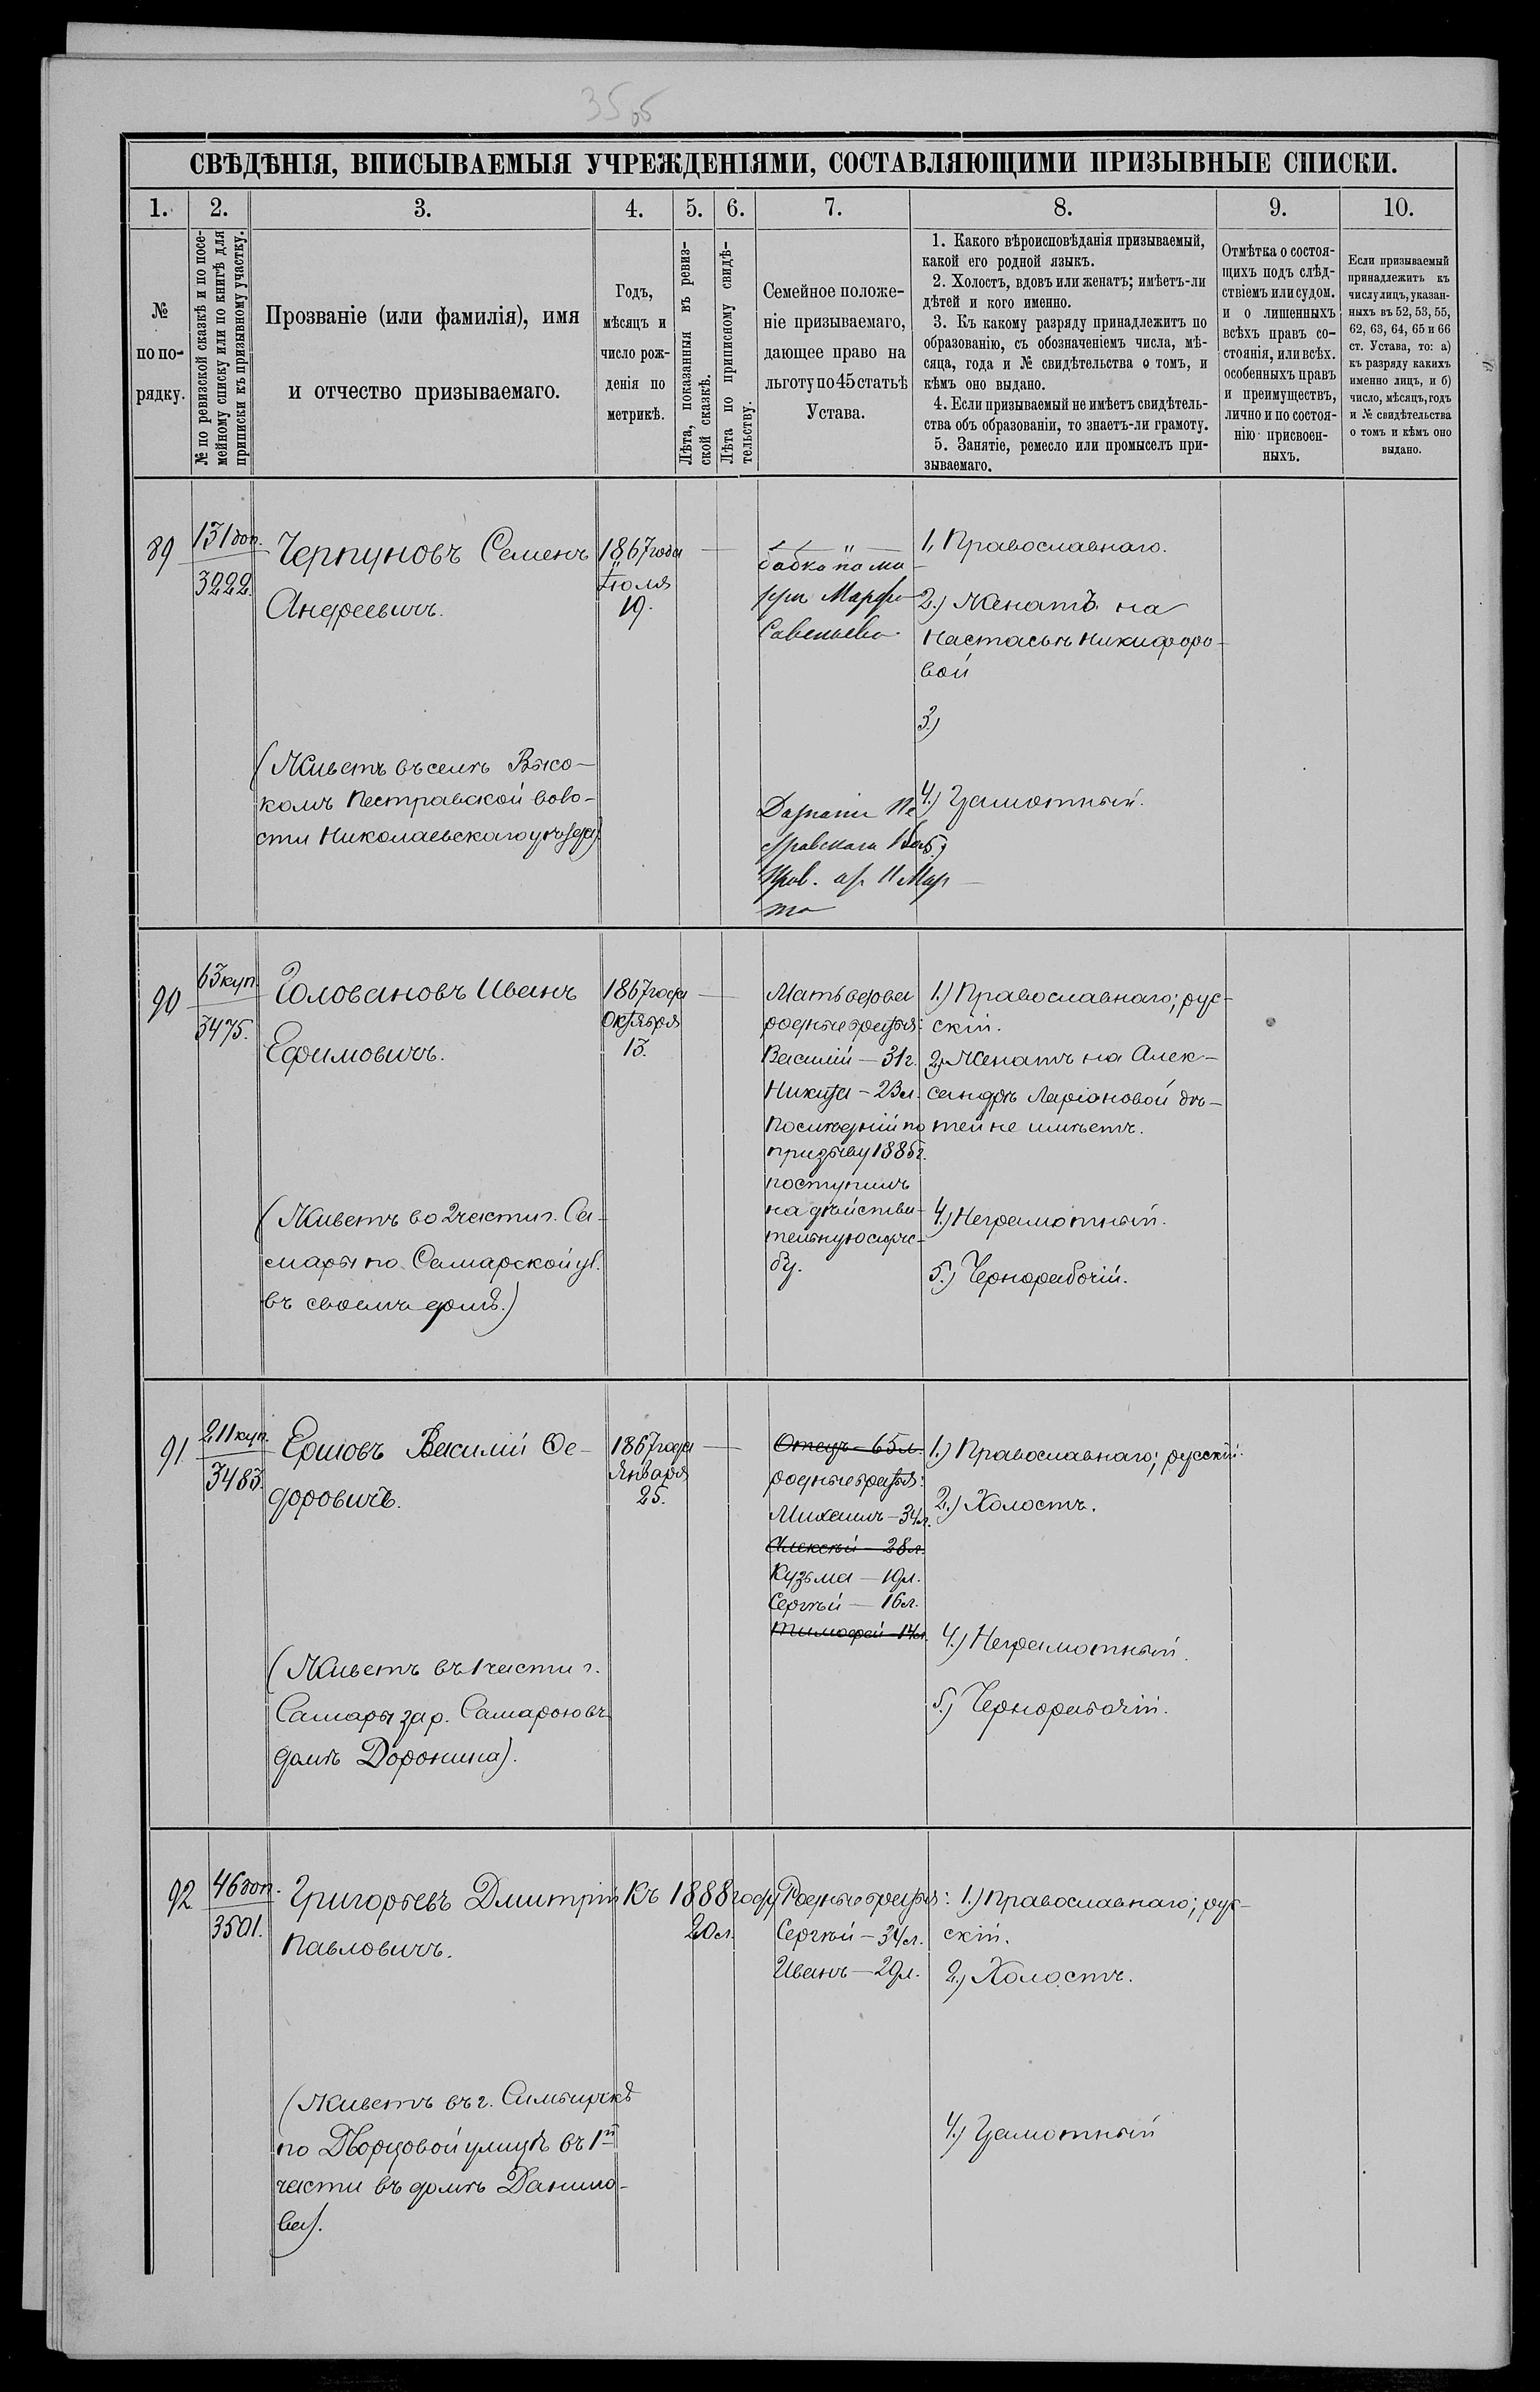 35об
СВѢДѢНІЯ, ВПИСЫВАЕМЫЯ УЧРЕЖДЕНІЯМИ, СОСТАВЛЯЮЩИМИ ПРИЗЫВНЫЕ СПИСКИ.
1.
2.
3.
4.
5.
6.
7.
8.
9.
10.
№
по по-
рядку.
№ по ревизской сказкѣ и по посе-
мейному списку или по книгѣ для
приписки къ призывному участку.
Прозваніе (или фамилія), имя
и отчество призываемаго.
Годъ,
мѣсяцъ и
число рож-
денія по
метрикѣ.
Лѣта, показанныя въ ревиз-
ской сказкѣ.
Лѣта по приписному свидѣ-
тельству.
Семейное положе-
ніе призываемаго,
дающее право на
льготу по 45 статьѣ
Устава.
1. Какого вѣроисповѣданія призываемый,
какой его родной языкъ.
2. Холостъ, вдовъ или женатъ; имѣетъ-ли
дѣтей и кого именно.
3. Къ какому разряду принадлежитъ по
образованію, съ обозначеніемъ числа, мѣ-
сяца, года и № свидѣтельства о томъ, и
кѣмъ оно выдано.
4. Если призываемый не имѣетъ свидѣтель-
ства объ образованіи, то знаетъ-ли грамоту.
5. Занятіе, ремесло или промыселъ при-
зываемаго.
Отмѣтка о состоя-
щихъ подъ слѣд-
ствіемъ или судом.
и о лишенныхъ
всѣхъ правъ со-
стоянія, или всѣх.
особенныхъ правъ
и преимуществъ,
лично и по состоя-
нію присвоен-
ныхъ.
Если призываемый
принадлежитъ къ
числу лицъ, указан-
ныхъ въ 52, 53, 55,
62, 63, 64, 65 и 66
ст. Устава, то: а)
къ разряду какихъ
именно лицъ, и б)
число, мѣсяцъ, годъ
и № свидѣтельства
о томъ и кѣмъ оно
выдано.
89
131 доп.
3222.
Черпуновъ Семенъ
Андреевичъ.
(Живетъ въ селѣ Высо-
комъ Пестравской воло-
сти Николаевскаго уѣзда)
1867 года
Іюля
19.
бабка по ма
тери Марфа
Савельева.
Дознаніе Пе
стравскаго Вол.
Прав. от 11 Мар
та
1, Православнаго.
2.) Женатъ на
Настасьѣ Никифоро-
вой
3.)
4.) Грамотный.
5.)
90
63 куп.
3475.
Головановъ Иванъ
Ефимовичъ.
(Живетъ во 2 части г. Са-
мары по Самарской ул.
въ своемъ домѣ.)
1867 года
Октября
13.
Мать вдова
родные братья:
Василій — 31 г.
Никита — 23 л.
Послѣдній по
призыву 1885 г.
поступилъ
на дѣйстви-
тельную служ-
бу.
1.) Православнаго; рус-
скій.
2.) Женатъ на Алек-
сандрѣ Ларіановой дѣ-
тей не имѣетъ.
4.) Неграмотный.
5.) Чернорабочій.
91
211 куп.
3483.
Ершовъ Василій Ѳе-
доровичъ.
(Живетъ въ 1 части г.
Самары за р. Самарою въ
домѣ Доронина).
1867 года
Января
25.
Отецъ — 65 л.
родные братья:
Михаилъ — 34 л.
Алексѣй — 28 л.
Кузьма — 19 л.
Сергѣй — 16 л.
Тимофей — 14 л.
1.) Православнаго; русскій.
2.) Холостъ.
4.) Неграмотный.
5.) Чернорабочій.
92
46 доп.
3501.
Григорьевъ Дмитрій
Павловичъ.
(Живетъ въ г. Симбирскѣ
по Дворцовой улицѣ въ 1й
части въ домѣ Данило-
ва).
Къ 1888 году
20 л.
Родные братья:
Сергѣй — 34 л.
Иванъ — 29 л.
1.) Православнаго; рус-
скій.
2.) Холостъ.
4.) Грамотный